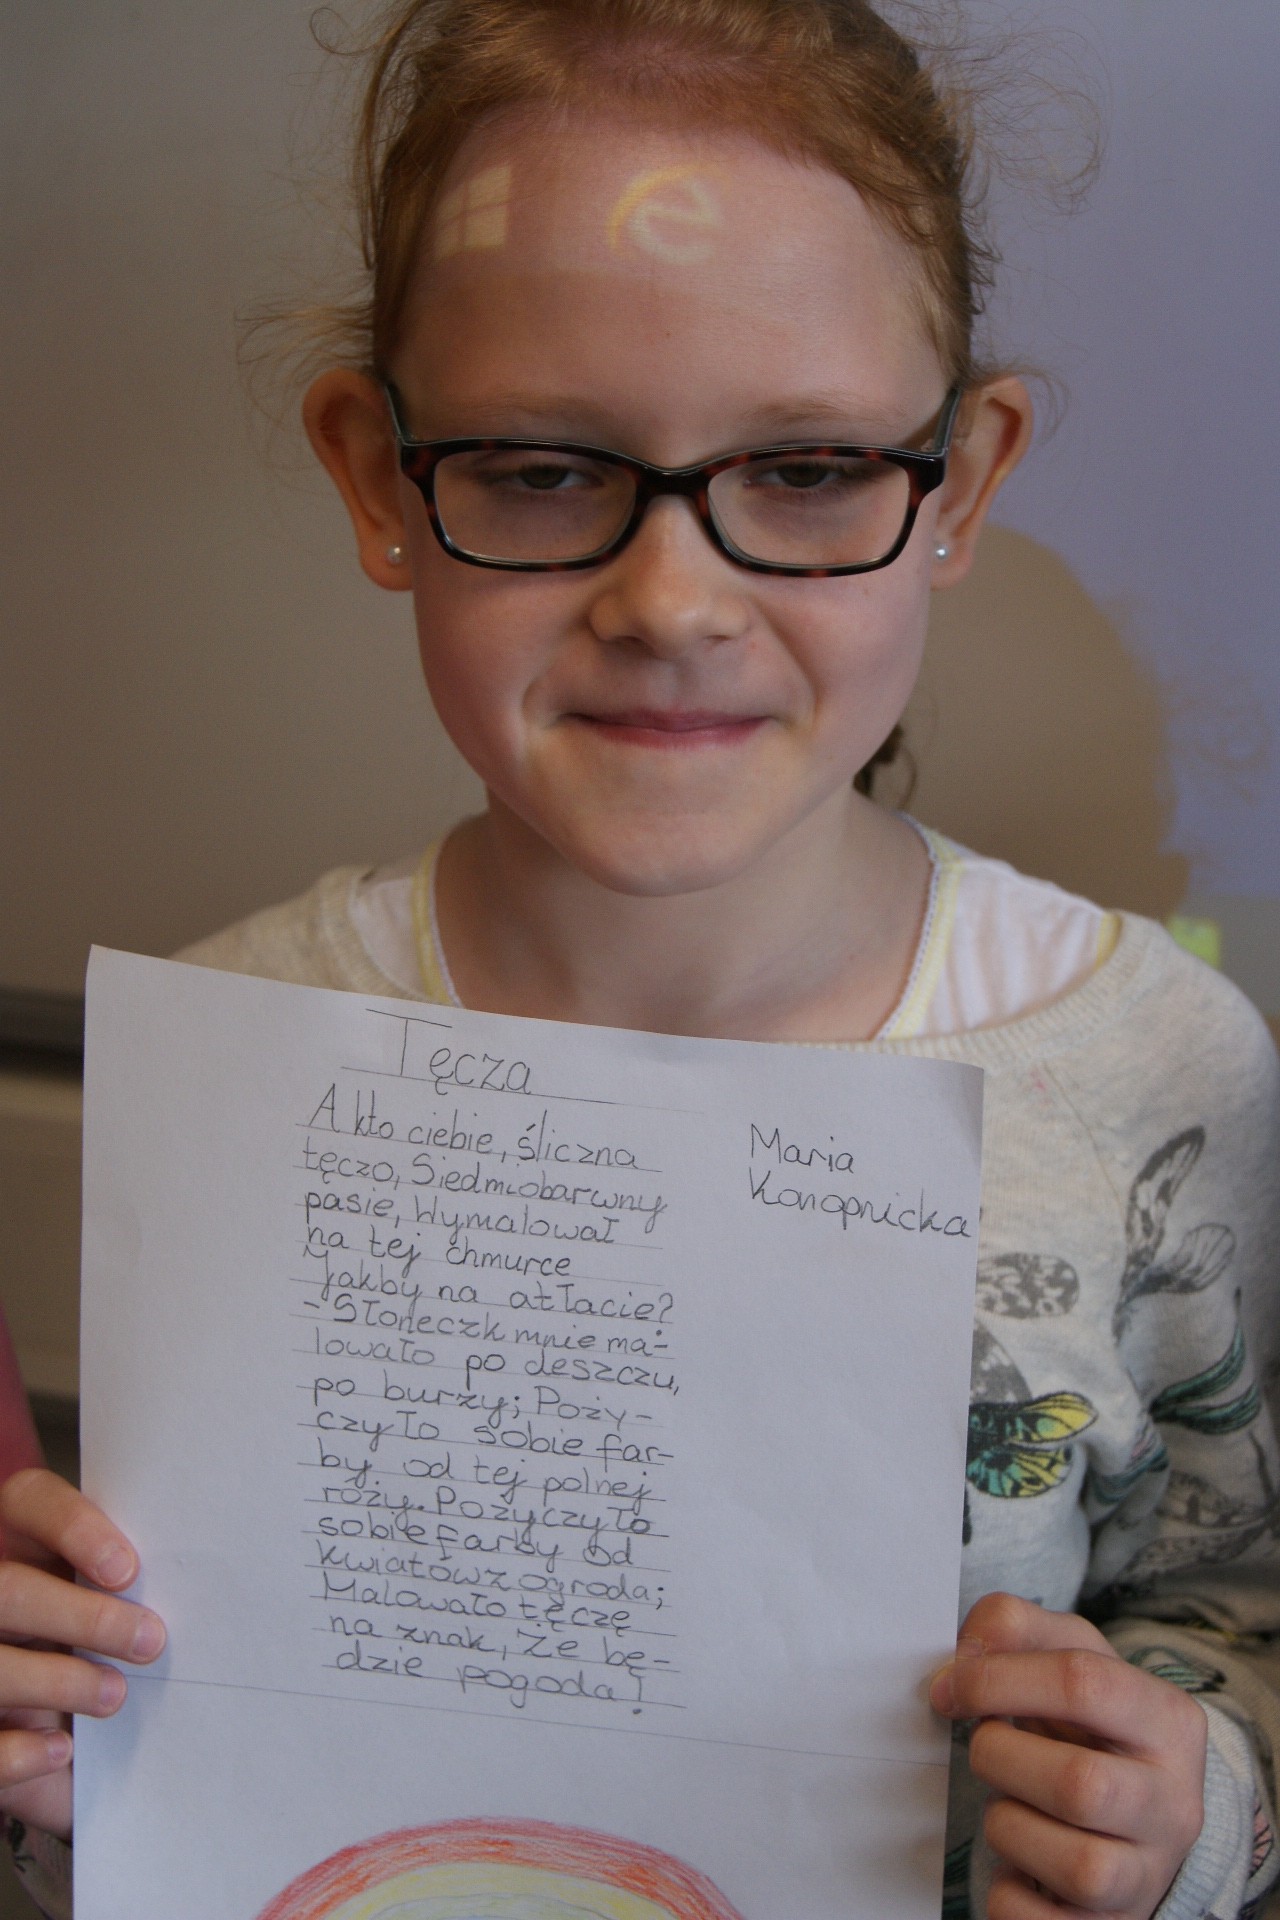 Tęcza
A kto ciebie, śliczna
tęczo, Siedmiobarwny
pasie, Wymalował
na tej chmurce
Jakby na atłacie?
- Słoneczk mnie ma-
lowało po deszczu,
po burzy; Poży-
czyło sobie far-
by od tej polnej
róży. Pożyczyło
sobie farby od
kwiatów z ogroda;
Malowało tęczę
na znak, że bę-
dzie pogoda!
Maria
Konopnicka